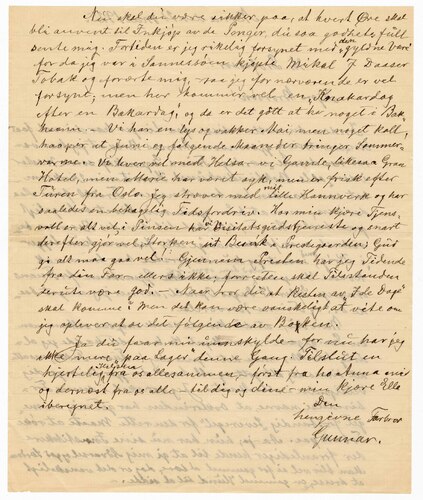 Nu skal du være sikker paa, at hvert Øre skal
bli anvent til Inkjöp av de Penger, du saa godhetsfullt
sente mig. Fortiden er jeg rikelig forsynet med den gyldne Vare
for da jeg var i Sannesheim kjøpte Mikal 7 Daaser
Tobak og forærte mig, saa jeg for nærverende er vel
forsynt; men her kommer vel en Knakardag
efter en Bakardag, og da er det gött at ha noget i Bak
haann. Vi har en lys og vakker Mai, men noget kall,
haaper at Juni og følgende Maaneder bringer Sommer-
varme. Vi lever vel med Helsa vi Gamle, likesaa Gran
Hotel, men Marie har været syk, men er frisk efter
Turen fra Oslo. Jeg strever med mit lille Hannverk og har
saaledes en behagelig Tidsfordriv. Hos min kjære Tjens
voll er alt vel, i Pinsen har Visitatsgudstjeneste og snart
derefter gjör vel Storken sit Besøk i Prestegaarden; Gud
gi alt maa gaa vel! Gjennem Presten har jeg Tidende
fra din Far ellers ikke, forresten skal Tilstanden
derute være god. Naar har du at Resten av "I de Dage"
skal komme? Men det kan være vanskelig at vite om
jeg oplever at se det følgende av Boken.
Ja du faar mig unskylde for nu har jeg
ikke mere "paa Lager" denne Gang. Tilslut en
hjertelig Helsen fra os allesammen först fra ho Anna mi
og dernæst fra os alle til dig og dine min kjære Ella
iberegnet.
Din
hengivne Farbror
Gunnar.